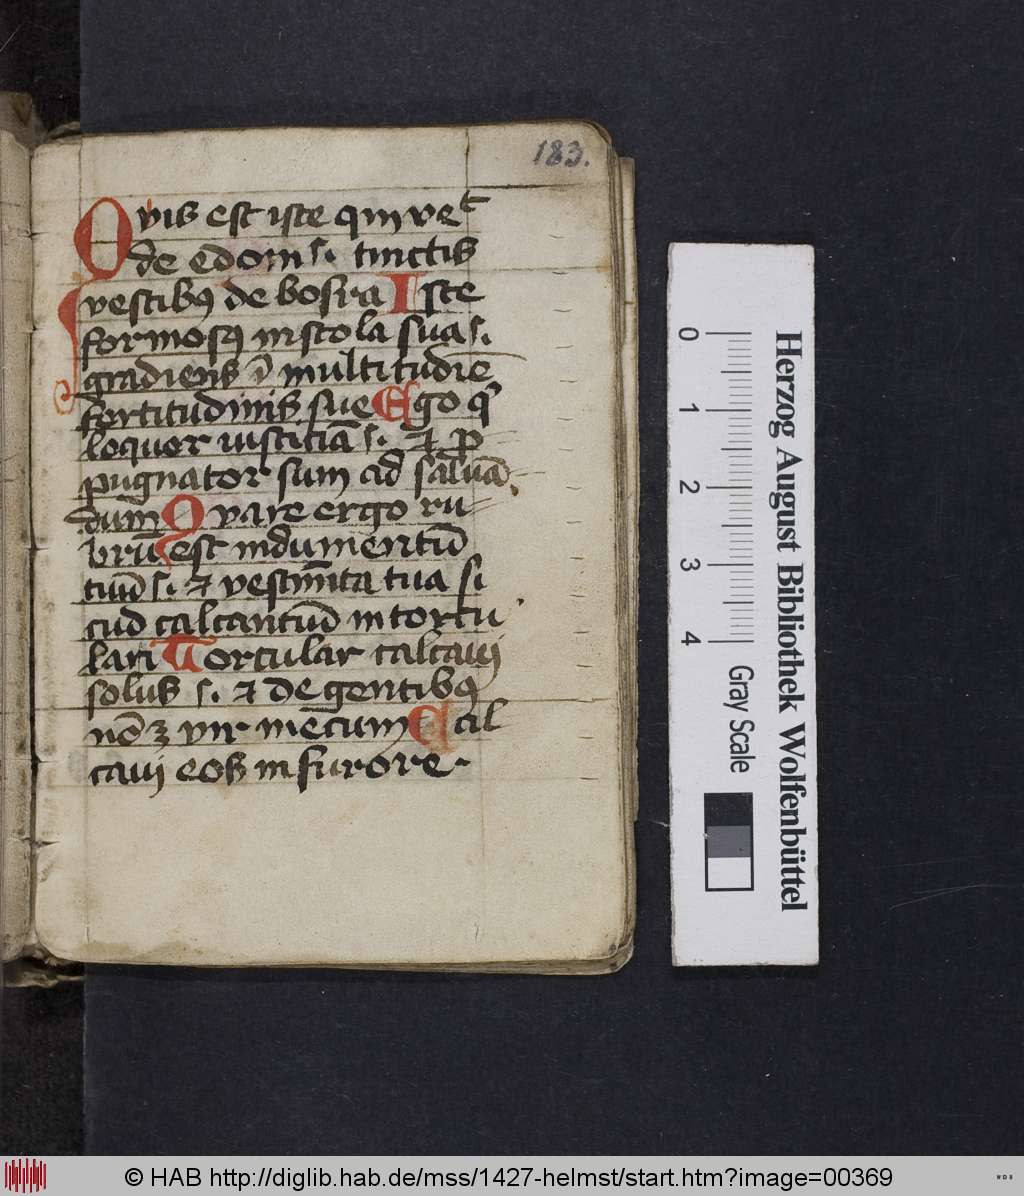 183.
Qvis est iste qui ve͞t
de edom s. tinctis
vestibꝰ de bosra Iste
formosꝰ in stola sua s.
gradiens ī multitudīe
fortitudinis sue Ego q̄
loquor iusticiā s. ⁊ ꝓ
pugnator sum ad saluā
dum Qvare ergo ru
brū est indumentū
tuū s. ⁊ vestim̄ta tua si
cud calcantiū in torcu
lari Torcular calcaui
solus s. ⁊ de gentibꝰ
nō ꝫ vir mecum Cal
caui eos in furore.
0 1 2 3 4
Herzog August Bibliothek Wolfenbüttel
Gray Scale
© HAB http://diglib.hab.de/mss/1427-helmst/start.htm?image=00369